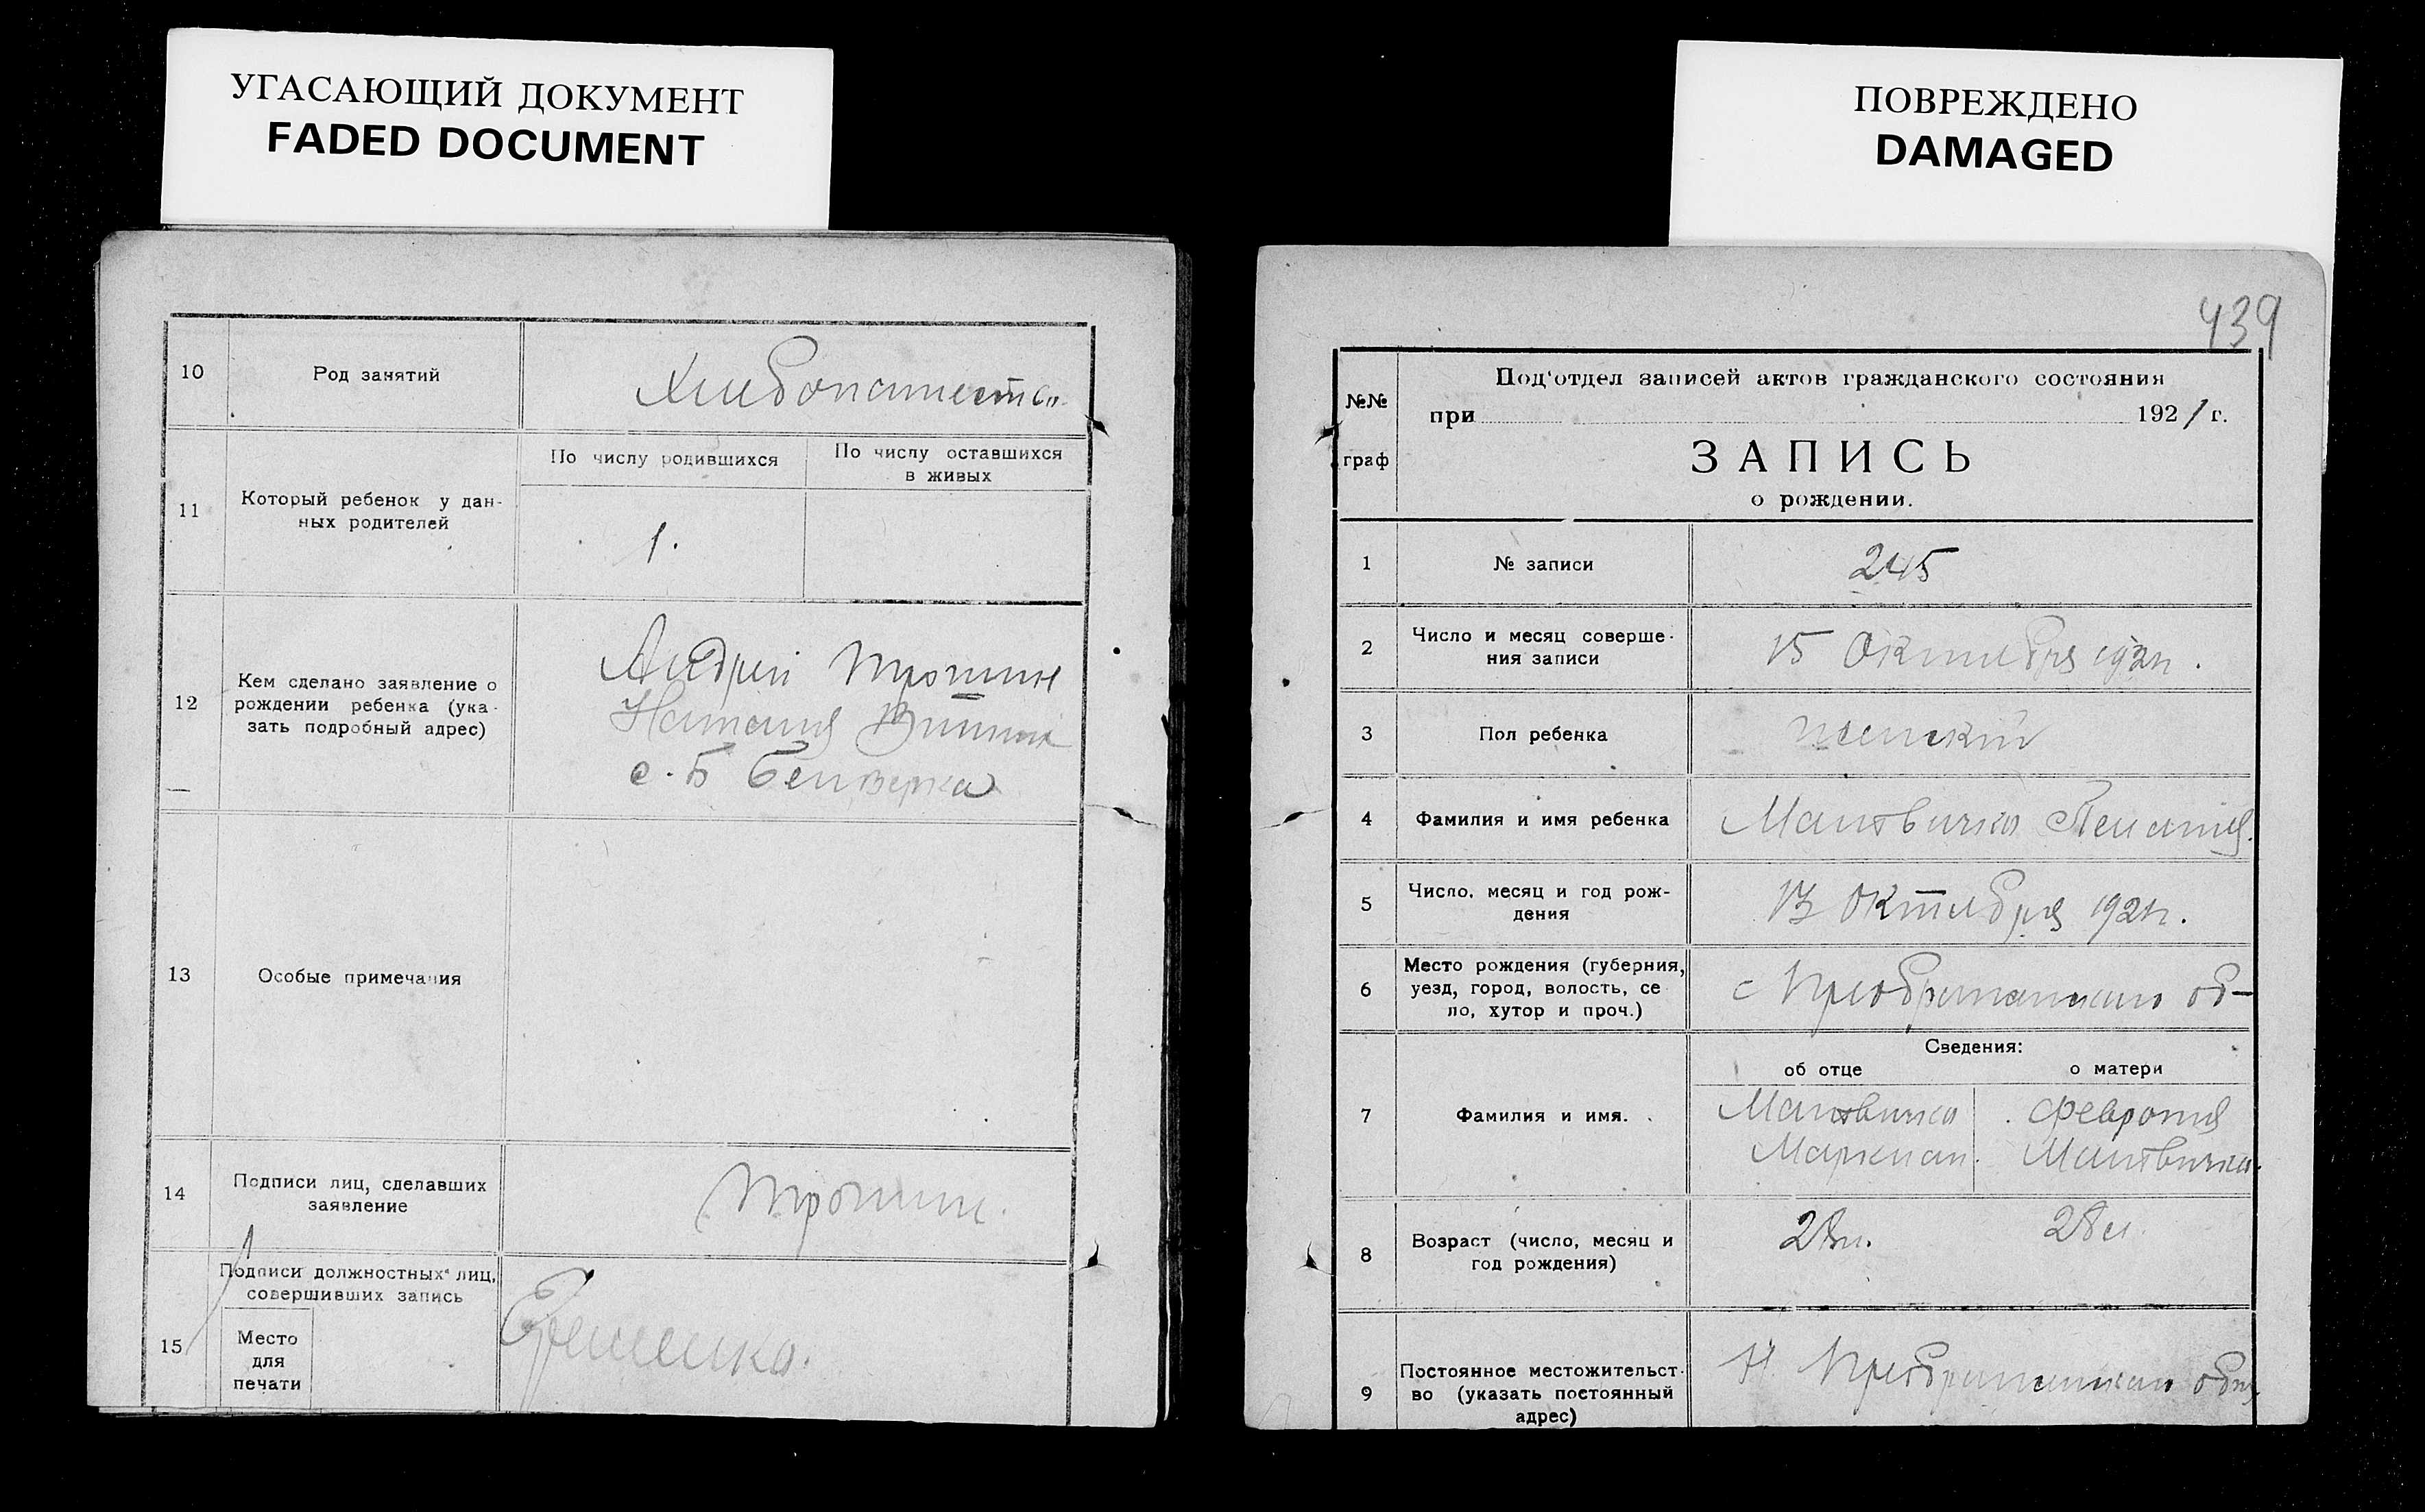 УГАСАЮЩИЙ ДОКУМЕНТ
FADED DOCUMENT
10
Род занятий
11
Который ребенок у дан-
ных родителей
По числу родившихся
По числу оставшихся
в живых
1.
12
Кем сделано заявление о
рождении ребенка (ука-
зать подробный адрес)
Андрей Трошин
Наталия
с. Б
13
Особые примечания
14
Подписи лиц, сделавших
заявление
Трошин.
15
Подписи должностных лиц,
совершивших запись
Место
для
печати
Еременко.
ПОВРЕЖДЕНО
DAMAGED
439
№№
граф
Под'отдел записей актов гражданского состояния
при 1921 г.
ЗАПИСЬ
о рождении.
1
№ записи
245
2
Число и месяц соверше-
ния записи
15 Октября 1921г.
3
Пол ребенка
женский
4
Фамилия и имя ребенка
Матвичка Пелагия.
5
Число, месяц и год рож-
дения
13 Октября 1921г.
6
Место рождения (губерния,
уезд, город, волость, се
ло, хутор и проч.)
с об-
Сведения:
об отце
о матери
7
Фамилия и имя.
Матвичка
Маркиан.
Феврония
Матвичка.
8
Возраст (число, месяц и
год рождения)
28л.
28л.
9
Постоянное местожительст-
во (указать постоянный
адрес)